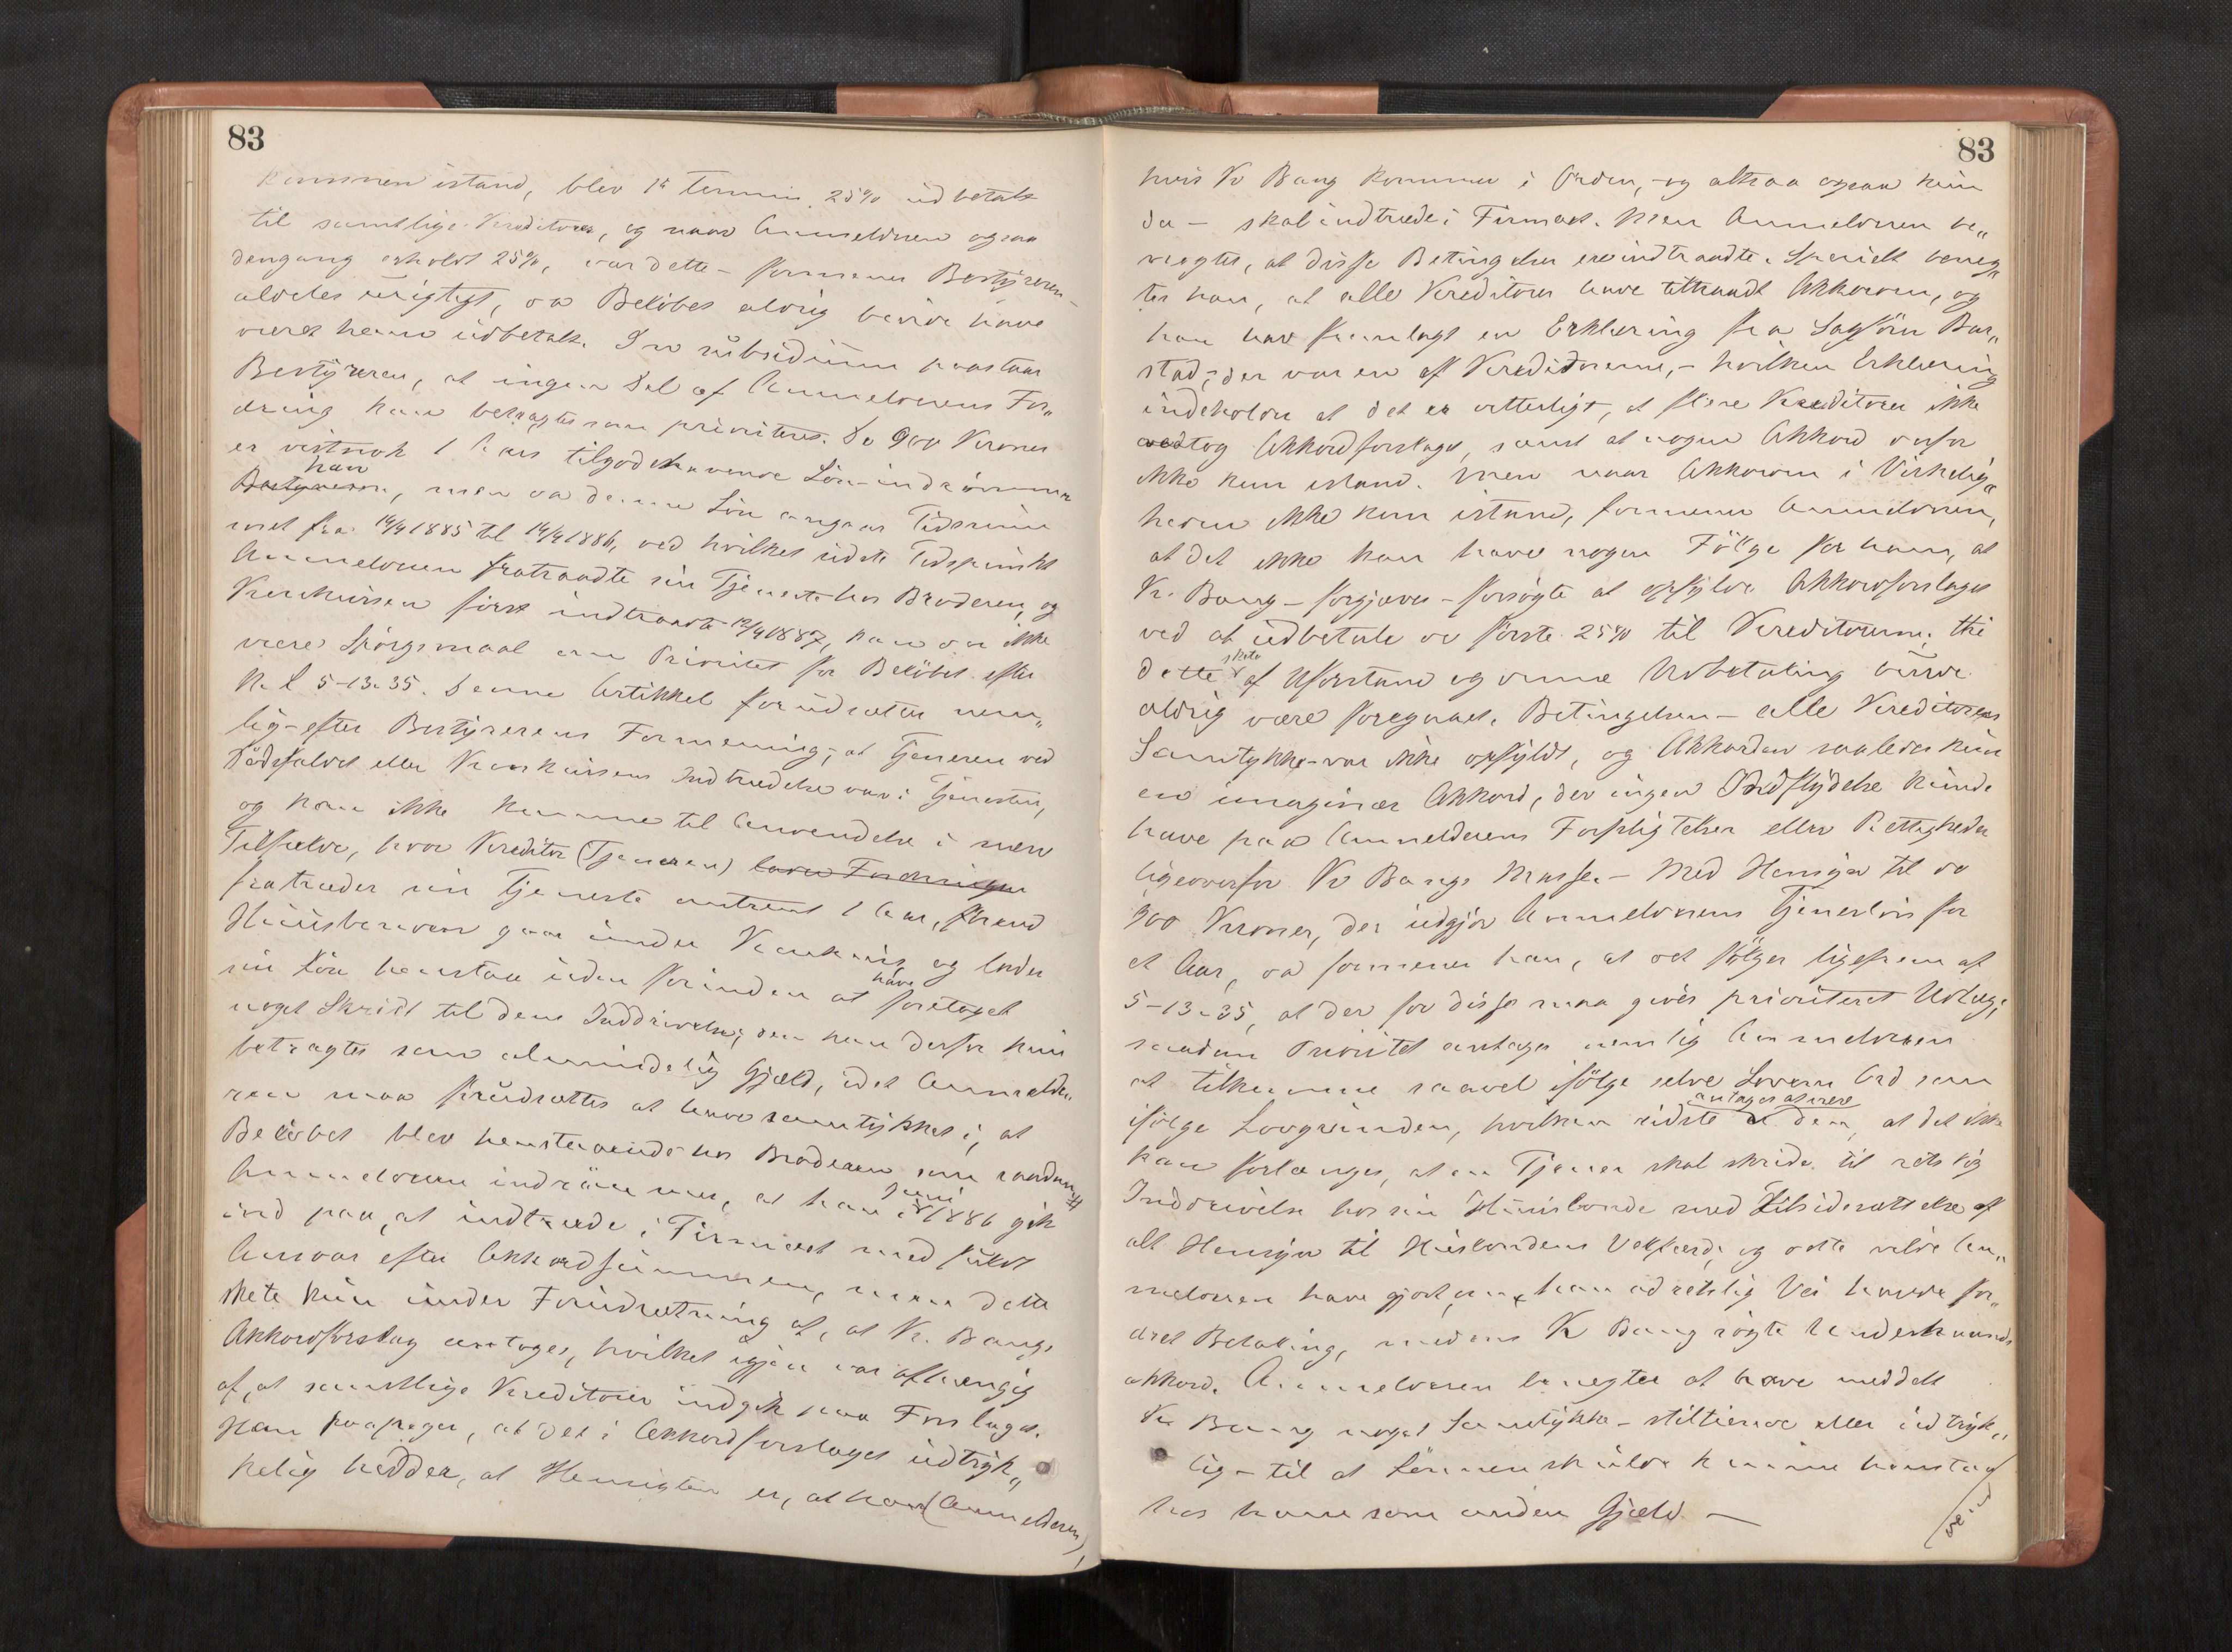 83
kommen istand, blev 1ste Termin, 25% udbetalt
til samtlige Kreditorer, og naar Anmelderen ogsaa
dengang erholdt 25%, var dette - formener Bestyreren -
aldeles urigtigt, da Beløbet aldrig burde have
været ham udbetalt. In subsidium paastaar
Bestyreren, at ingen Del af Anmelderens For„
dring kan betragtes som prioriteret. De 900 Kroner
er vistnok 1 Aars tilgodehavende Løn - indrømmer
han
Bestyreren, men da denne Løn angaar Tidsrum
met fra 14/4 1885 til 14/4 1886, ved hvilket sidste Tidspunkt
Anmelderen fratraadte sin Tjeneste hos Broderen, og
Konkursen først indtraadte 12/4 1887, kan der ikke
være Spørgsmaal om Prioritet for Beløbet efter
N. L. 5-13-35. Denne Artikkel forudsætter nem„
lig - efter Bestyrerens Formening, at Tjeneren ved
Dødsfaldet eller Konkursens Indtrædelse var i Tjenesten,
og kan ikke komme til Anvendelse i dette
Tilfælde, hvor Kreditor (Tjeneren) lader Fordringen
fratræder sin Tjeneste omtrent 1 Aar, førend
Huusbonden gaar under Konkurs, og lader
sin Løn henstaa uden forinden at have foretaget
noget Skridt til dens Inddrivelse; den kan derfor kun
betragtes som almindelig Gjæld, idet Anmelde„
ren maa forudsættes at have samtykket i, at
Beløbet blev henstaaende hos Broderen som saadan.
Anmelderen indrømmer, at han i Juni 1886 gik
ind paa, at indtræde i Firmaet med fuldt
Ansvar efter Akkordsummen, men dette
skete kun under Forudsætning af, at Kr. Bangs
Akkordforslag antoges, hvilket igjen var afhængig
af, at samtlige Kreditorer indgik paa Forslaget.
Han paapeger, at det i Akkordforslaget udtryk„
kelig hedder, at Hensigten er, at han (Anmelderen),
83
hvis Kr Bang kommer i Orden, - og altsaa ogsaa kun
da - skal indtræde i Firmaet. Men Anmelderen be„
negter, at disse Betingelser er indtraadte. Specielt beneg„
ter han, at alle Kreditorer have tiltraadt Akkorden, og
han har fremlagt en Erklæring fra Sagfører Bar„
stad, der var en af Kreditorerne, - hvilken Erklæring
indeholder at det er vitterligt, at flere Kreditorer ikke
vedtog Akkordforslaget, samt at nogen Akkord derfor
ikke kom istand. Men naar Akkorden i Virkelig„
heden ikke kom istand, formener Anmelderen,
at det ikke kan have nogen Følge for ham, at
Kr. Bang - forgjæves - forsøgte at opfylde Akkordforslaget
ved at udbetale de første 25% til Kreditorerne; thi
dette skete af Uforstand og denne Udbetaling burde
aldrig være foregaaet. Betingelsen - alle Kreditorers
Samtykke - var ikke opfyldt, og Akkorden saaledes kun
en imaginær Akkord, der ingen Indflydelse kunde
have paa Anmelderens Forpligtelser eller Rettigheder
ligeoverfor Kr Bangs Masse. - Med Hensyn til de
900 Kroner, der udgjør Anmelderens Tjenerløn for
et Aar, da formener han, at det følger ligefrem af
5-13-35, at der for disse maa gives prioriteret Udlæg;
saadan Prioritet antager nemlig Anmelderen
at tilkomme saavel ifølge selve Lovens Ord som
ifølge Lovgrunden, hvilken sidste antages at være den, at det ikke
kan forlanges, at en Tjener skal skride til retslig
Inddrivelse hos sin Huusbonde med Tilsidesættelse af
alt Hensyn til Husbondens Velfærd; og dette vilde An„
melderen have gjort, om han ad retslig Vei havde for„
dret Betaling, medens Kr Bang søgte Underhaands
akkord. Anmelderen benegter at have meddelt
Kr Bang noget Samtykke - stiltiende eller udtryk„
lig - til at Lønnen skulde kunne henstaa
hos ham som anden Gjæld. -